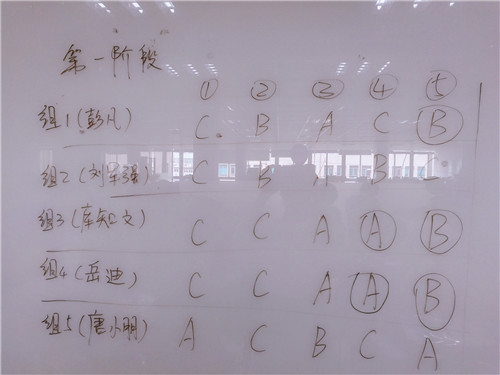 第一阶段
① ② ③ ④ ⑤
组1(彭凡) C B A C B
组2(刘军强) C B A B
组3(库矢口文) C C A A B
组4(岳迪) C C A A B
组5(唐小明) A C B C A